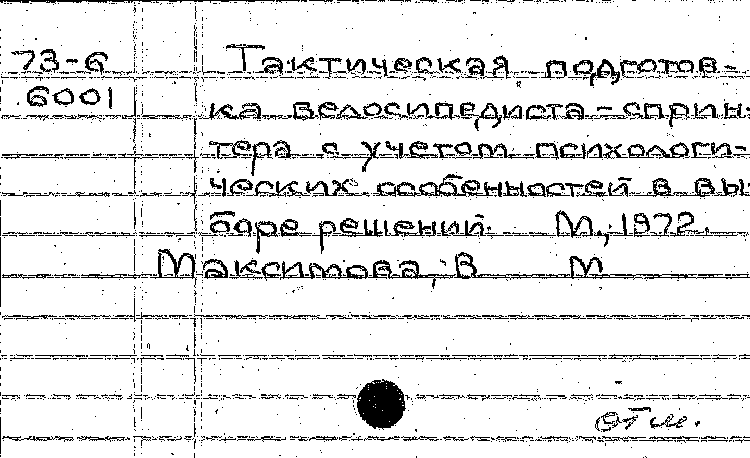 73-6 Тактическая подготов-
6001 ка велосипедиста - сприн-
тера с учетом психологи-
ческих особенностей в вы-
боре решений. М., 1972.
Максимова, В М